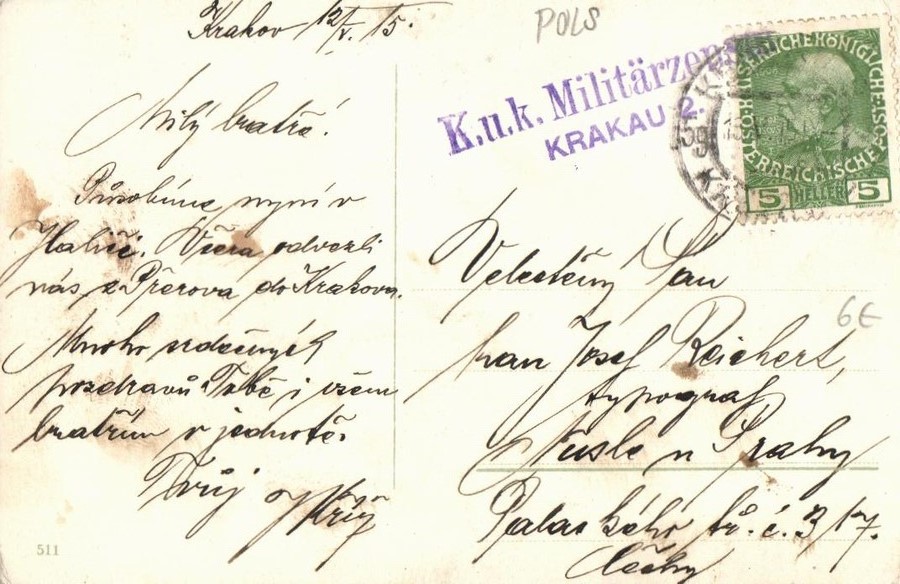 Krakov 12/V. 15.
POLS
K.u.k. Militärzen
KRAKAU 2.
KAISERLICHE KÖNIGLICHE
ÖSTERREICHISCHE POST
5 HELLER 5
Milý bratře!
Působíme nyní v
Haliči. Včera odvezli
nás z Přerova do Krakova.
Mnoho srdečných
pozdravů Tobě i všem
bratřím v jednotě.
Tvůj
Velectěný Pan
pan Josef Reichert,
typograf
Nusle u Prahy
Palackého tř. č. 317.
Čechy
6€
511